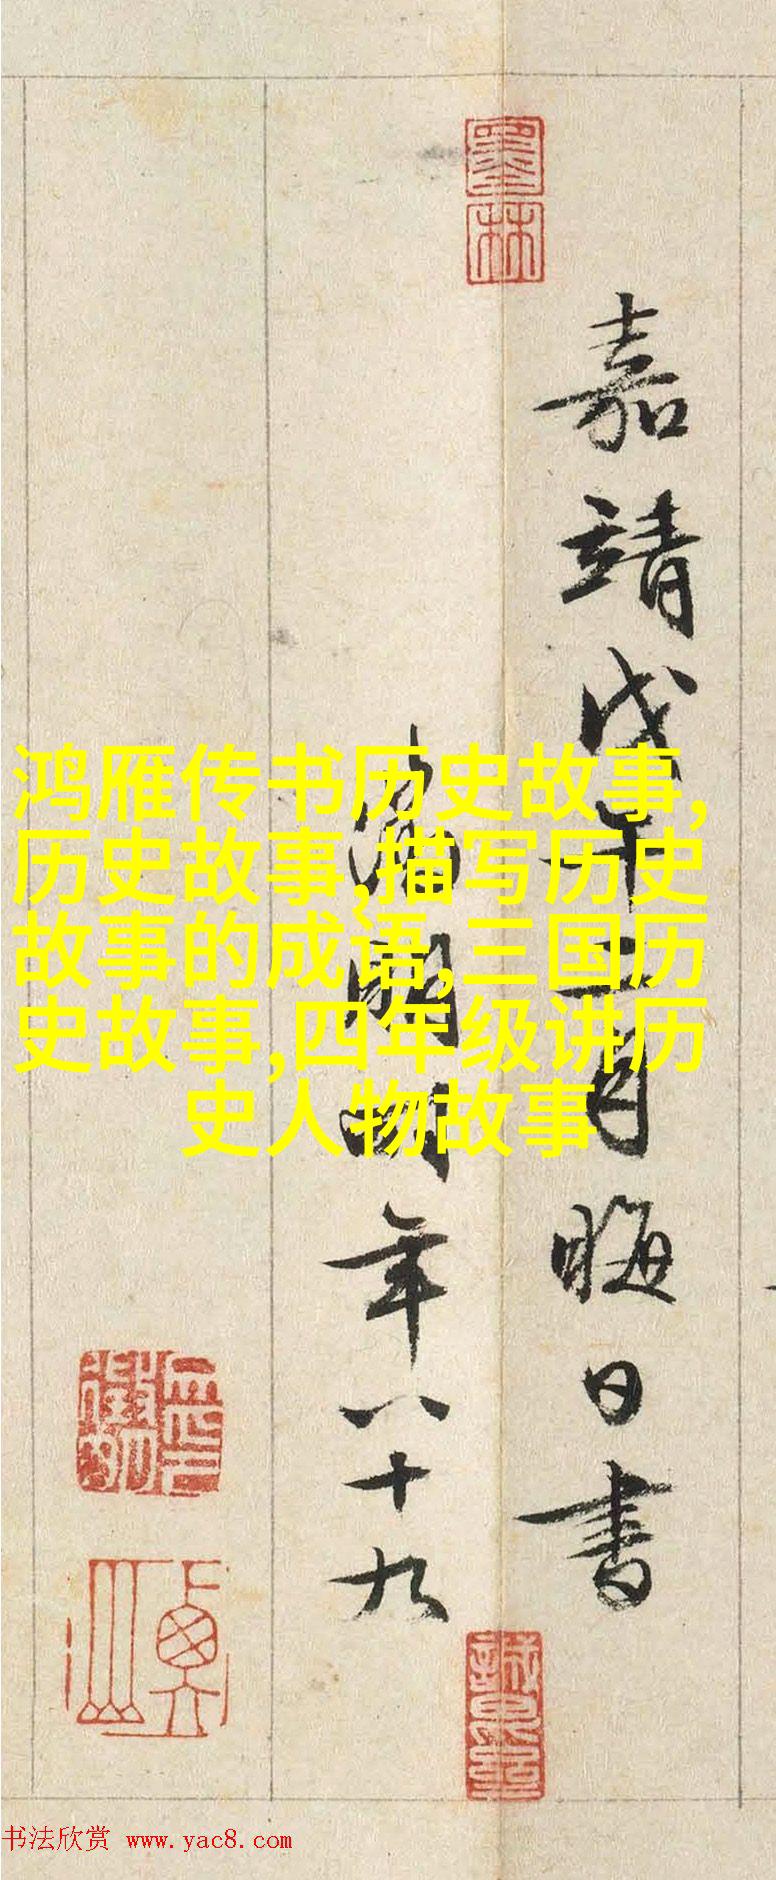 嘉靖戊午二月晦日書
徵明時年八十九
鸿雁传书历史故事,
历史故事,描写历史
故事的成语,三国历
史故事,四年级讲历
史人物故事
墨林
书法欣赏 www.yac8.com